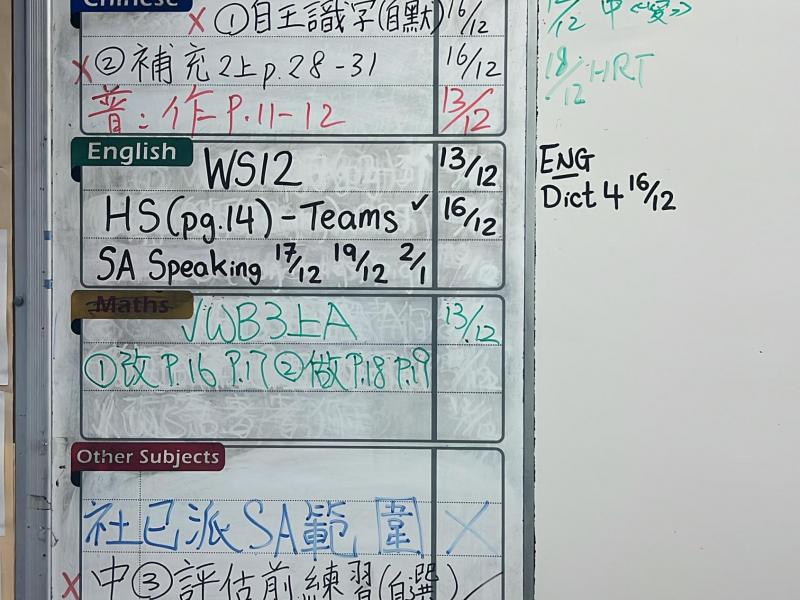 Chinese
✗ ①自主識字(自默) 16/12
✗ ②補充2上p.28-31 16/12
普:作P.11-12 13/12
English
WS12 13/12
HS(pg.14)-Teams ✓ 16/12
SA Speaking 17/12 19/12 2/1
Maths
√WB3上A 13/12
①改P.16 P.17 ②做P.18 P.19
Other Subjects
社已派SA範圍 ✗
✗ 中③評估前練習(自選)
18/12 HRT
ENG
Dict 4 16/12